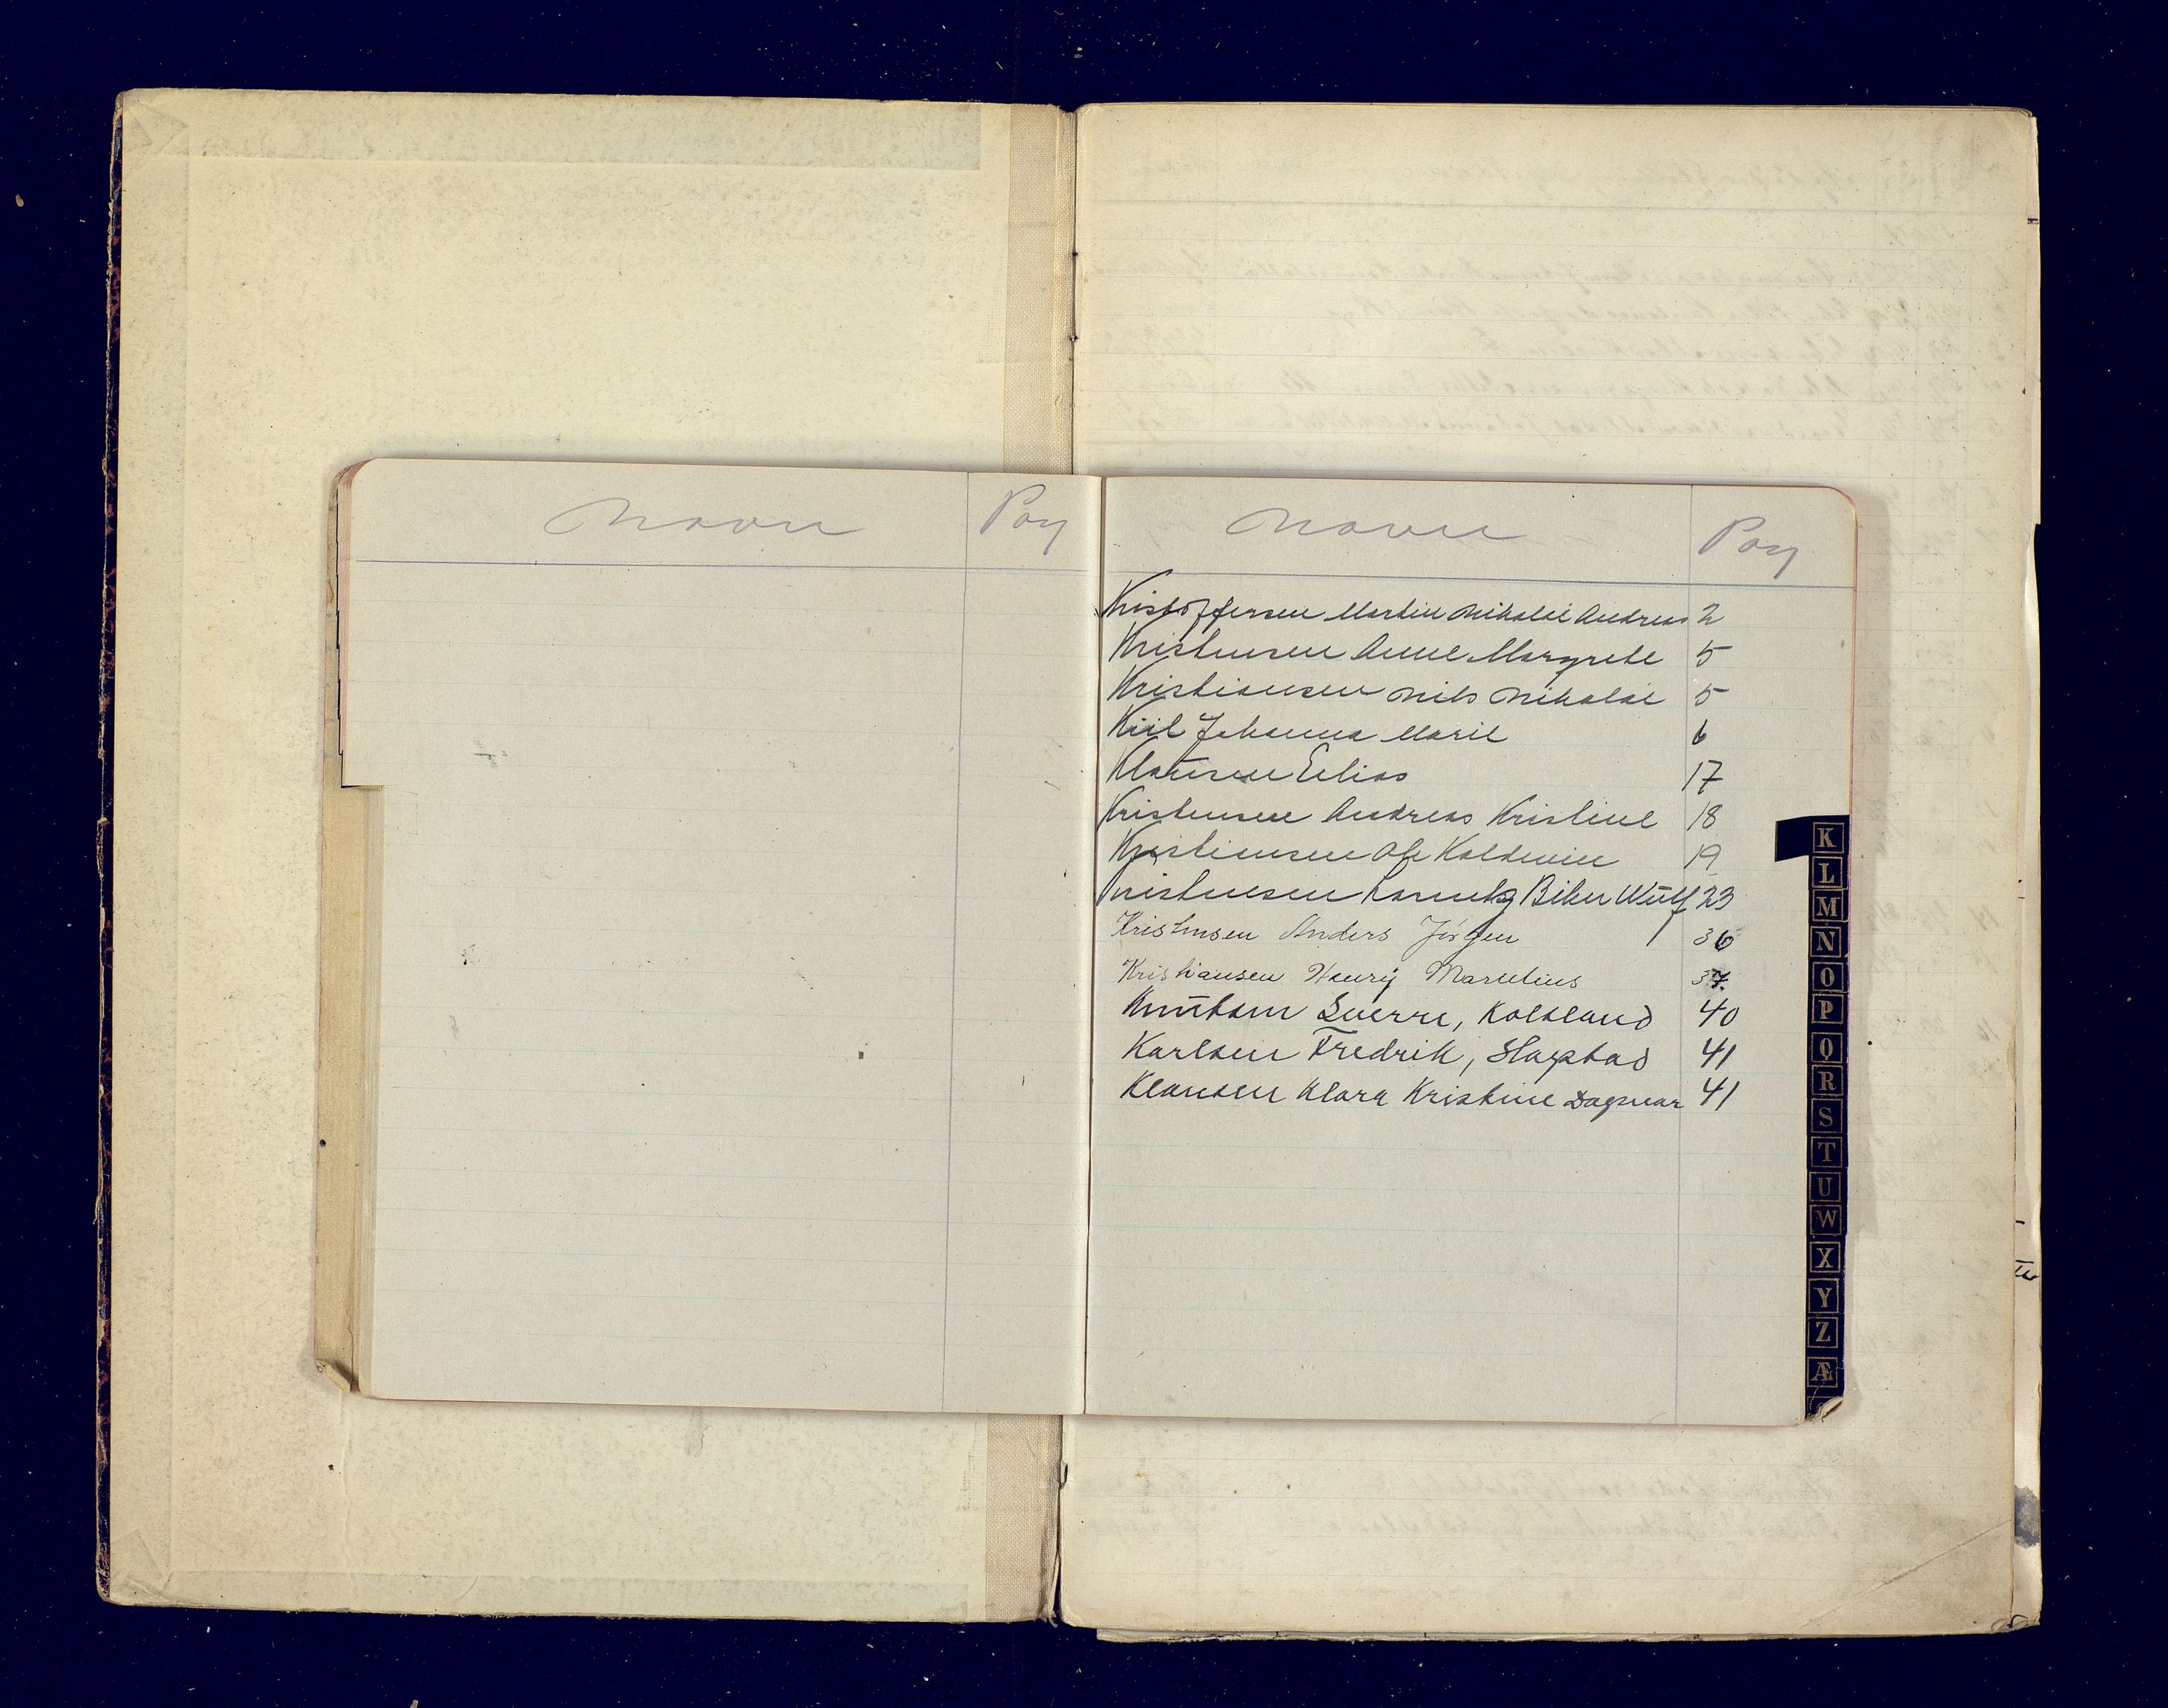 Navn Pag
Navn Pag
Kristoffersen Martin Nikolai Andreas 2
Kristensen Anne Margrete 5
Kristiansen Nils Nikolai 5
Kiil Johanna Marie 6
Klausen Elias 17
Kristensen Andreas Kristine 18
Kristiansen Ole Koldevin 19
Kristensen Biber Wulf 23
Kristensen Anders Jørgen 36
Kristiansen Henry Marelius 37.
Knutsen Sverre, Kalsland 40
Karlsen Fredrik, Slapstad 41
Klausen Klara Kristine Dagmar 41
K
L
M
N
O
P
Q
R
S
T
U
W
X
Y
Z
Æ